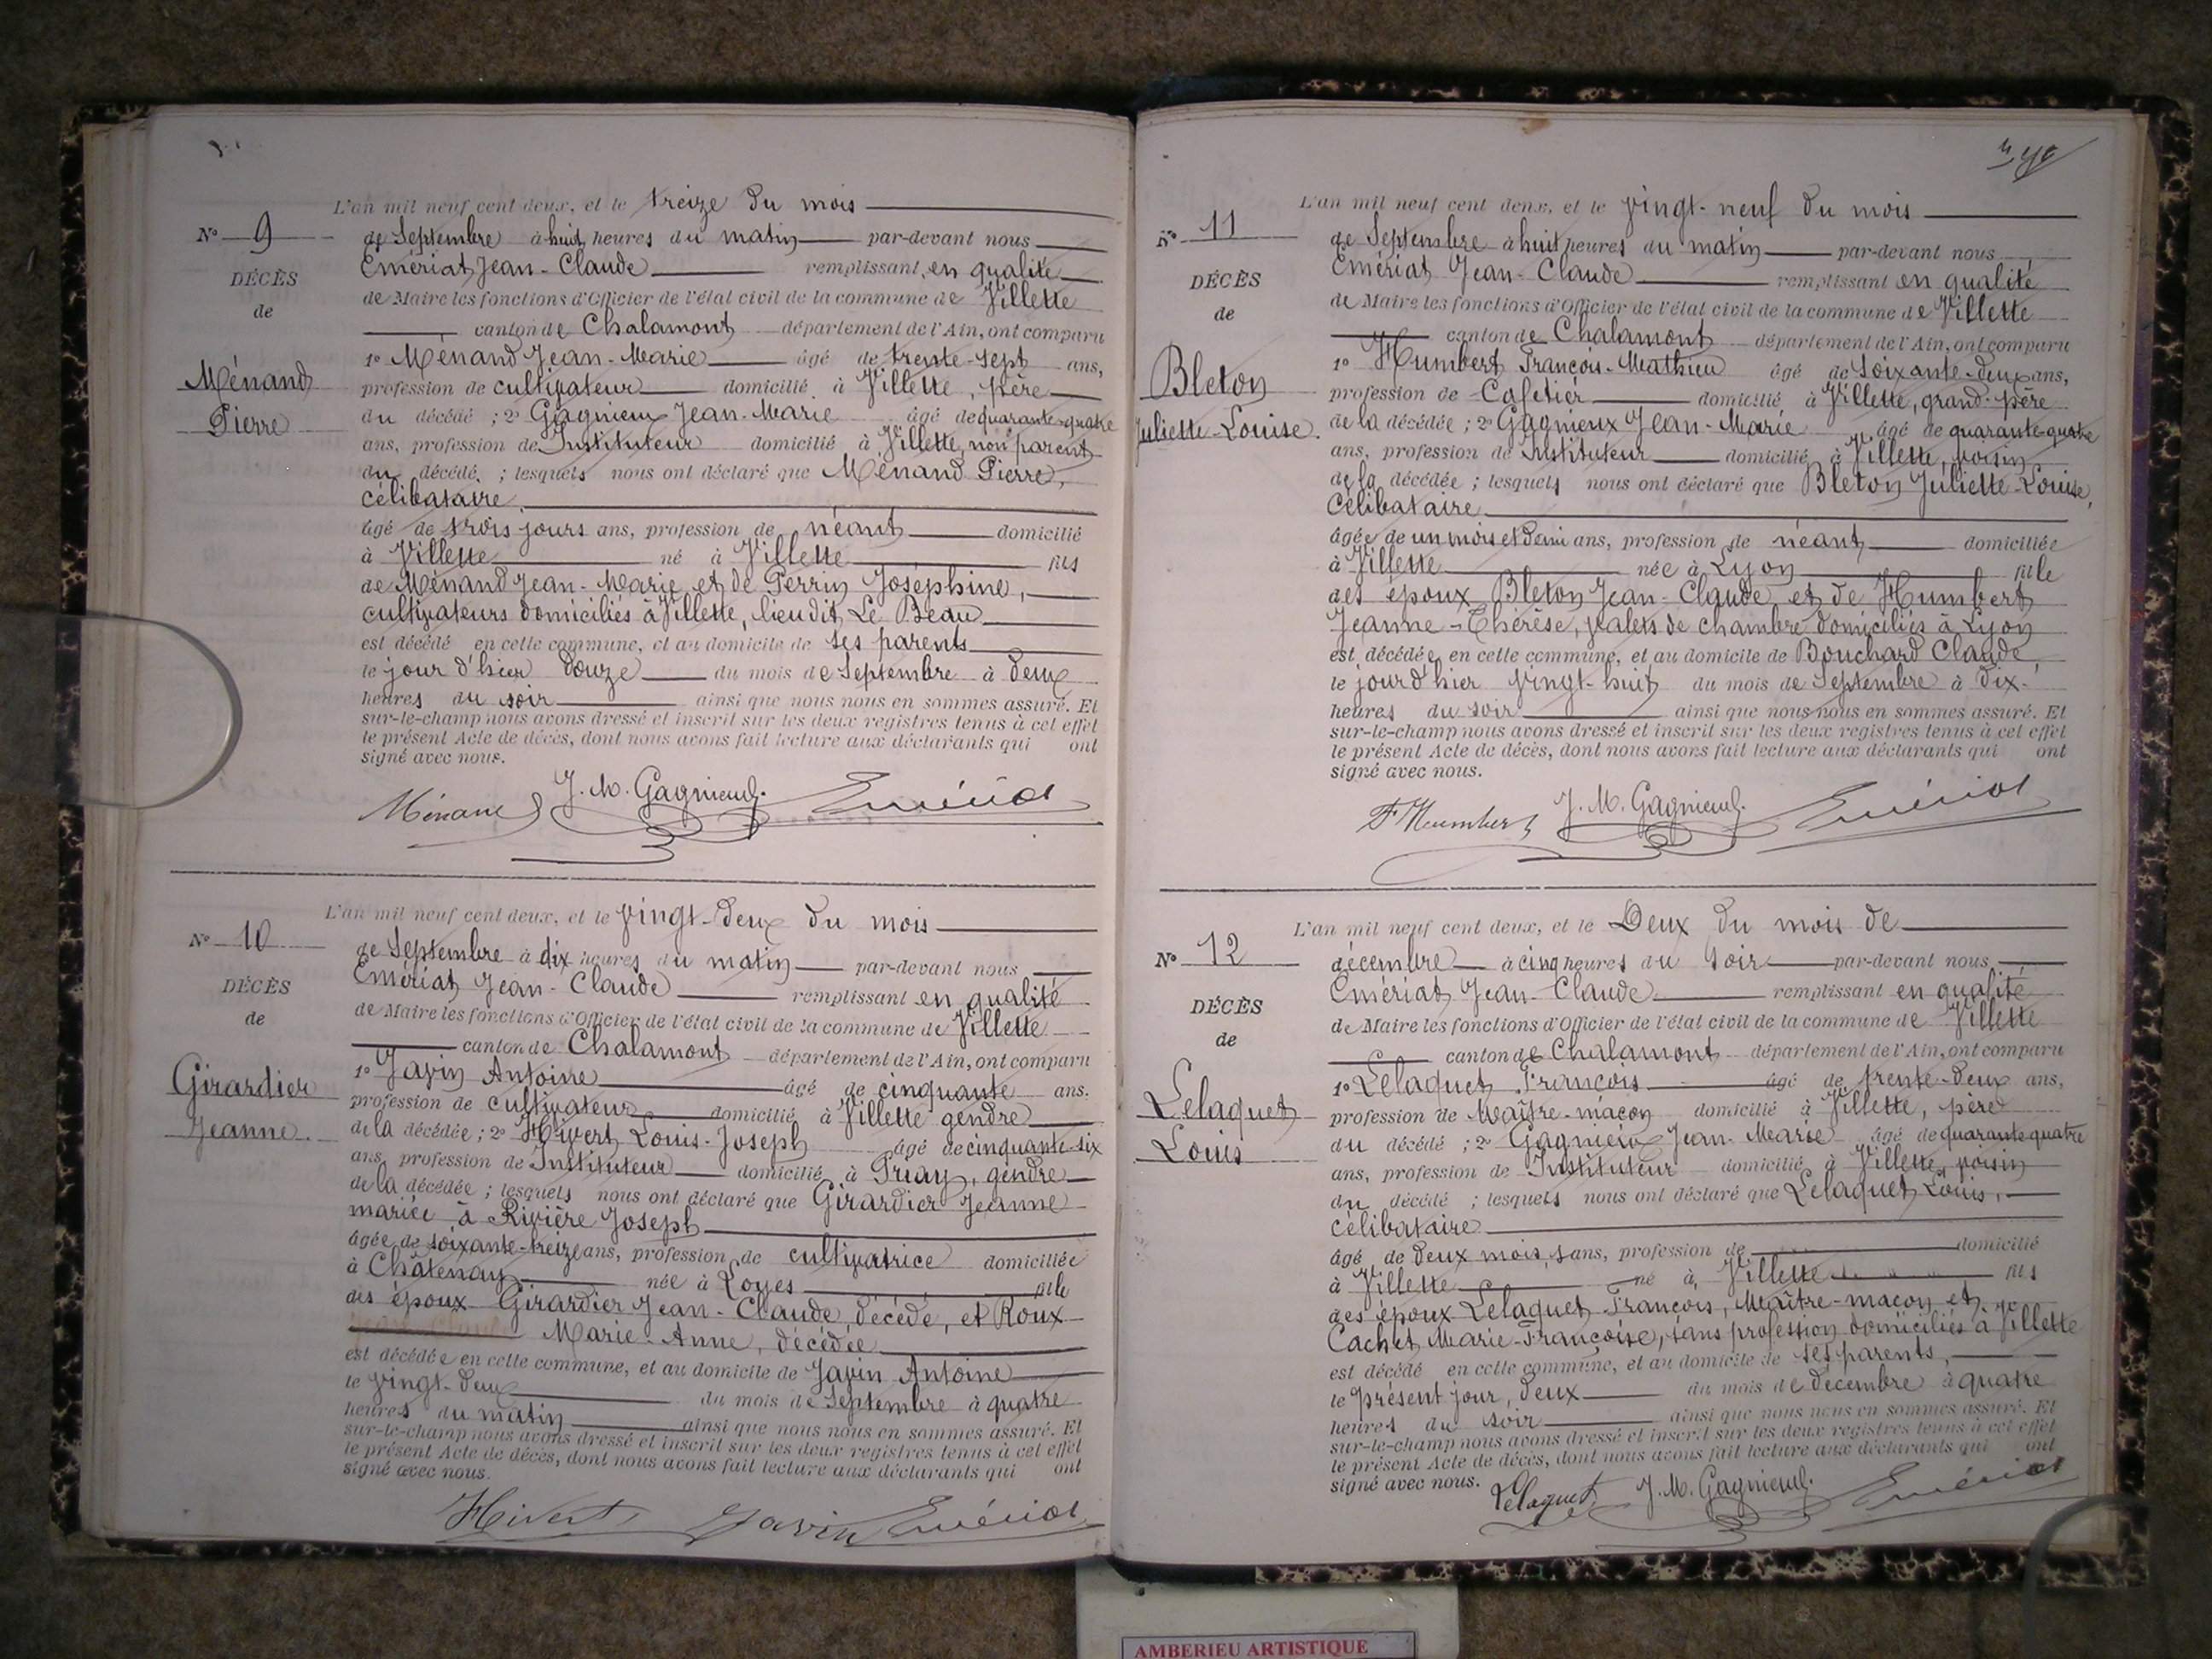 L'an mil neuf cent deux, et le treize du mois
N° 9
de Septembre à huit heures du matin par-devant nous
Emériat Jean-Claude remplissant en qualité
DÉCÈS
de Maire les fonctions d'Officier de l'état civil de la commune de Villette
de
canton de Chalamont département de l'Ain, ont comparu
1° Ménand Jean-Marie âgé de trente-sept ans,
Ménand
profession de cultivateur domicilié à Villette, père
Pierre
du décédé ; 2° Gagnieux Jean-Marie âgé de quarante-quatre
ans, profession de Instituteur domicilié à Villette, non parent
du décédé ; lesquels nous ont déclaré que Ménand Pierre,
célibataire
âgé de trois jours ans, profession de néant domicilié
à Villette né à Villette fils
de Ménand Jean-Marie et de Perrin Joséphine,
cultivateurs domiciliés à Villette, lieu dit Le Beau
est décédé en cette commune, et au domicile de ses parents
le jour d'hier douze du mois de Septembre à deux
heures du soir ainsi que nous nous en sommes assuré. Et
sur-le-champ nous avons dressé et inscrit sur les deux registres tenus à cet effet
le présent Acte de décès, dont nous avons fait lecture aux déclarants qui ont
signé avec nous.
Ménand J. M. Gagnieux. Emériat
L'an mil neuf cent deux, et le vingt-deux du mois
N° 10
de Septembre à dix heures du matin par-devant nous
Emériat Jean-Claude remplissant en qualité
DÉCÈS
de Maire les fonctions d'Officier de l'état civil de la commune de Villette
de
canton de Chalamont département de l'Ain, ont comparu
1° Javin Antoine âgé de cinquante ans.
Girardier
profession de cultivateur domicilié à Villette gendre
Jeanne.
de la décédée ; 2° Hivert Louis-Joseph âgé de cinquante-six
ans, profession de Instituteur domicilié à Priay, gendre
de la décédée ; lesquels nous ont déclaré que Girardier Jeanne
mariée à Rivière Joseph
âgée de soixante-treize ans, profession de cultivatrice domiciliée
à Châtenay née à Loyes fille
des époux Girardier Jean-Claude, décédé, et Roux
Marie-Anne, décédée
est décédée en cette commune, et au domicile de Javin Antoine
le vingt-deux du mois de Septembre à quatre
heures du matin ainsi que nous nous en sommes assuré. Et
sur-le-champ nous avons dressé et inscrit sur les deux registres tenus à cet effet
le présent Acte de décès, dont nous avons fait lecture aux déclarants qui ont
signé avec nous.
Hivert Javin Emériat
L'an mil neuf cent deux, et le vingt-neuf du mois
N° 11
de Septembre à huit heures du matin par-devant nous
Emériat Jean-Claude remplissant en qualité
DÉCÈS
de Maire les fonctions d'Officier de l'état civil de la commune de Villette
de
canton de Chalamont département de l'Ain, ont comparu
1° Humbert François-Mathieu âgé de soixante-deux ans,
Bleton
profession de Cafetier domicilié à Villette, grand-père
Juliette-Louise.
de la décédée ; 2° Gagnieux Jean-Marie âgé de quarante-quatre
ans, profession de Instituteur domicilié à Villette, voisin
de la décédée ; lesquels nous ont déclaré que Bleton Juliette-Louise,
célibataire
âgée de un mois et demi ans, profession de néant domiciliée
à Villette née à Lyon fille
des époux Bleton Jean-Claude et de Humbert
Jeanne-Thérèse, valets de chambre domiciliés à Lyon
est décédée en cette commune, et au domicile de Bouchard Claude,
le jour d'hier vingt-huit du mois de Septembre à dix
heures du soir ainsi que nous nous en sommes assuré. Et
sur-le-champ nous avons dressé et inscrit sur les deux registres tenus à cet effet
le présent Acte de décès, dont nous avons fait lecture aux déclarants qui ont
signé avec nous.
F Humbert J. M. Gagnieux. Emériat
L'an mil neuf cent deux, et le Deux du mois de
N° 12
décembre à cinq heures du soir par-devant nous
Emériat Jean-Claude remplissant en qualité
DÉCÈS
de Maire les fonctions d'Officier de l'état civil de la commune de Villette
de
canton de Chalamont département de l'Ain, ont comparu
1° Lelaquet François âgé de trente-deux ans,
Lelaquet
profession de Maître-maçon domicilié à Villette, père
Louis
du décédé ; 2° Gagnieux Jean-Marie âgé de quarante-quatre
ans, profession de Instituteur domicilié à Villette, voisin
du décédé ; lesquels nous ont déclaré que Lelaquet Louis,
célibataire
âgé de deux mois, ans, profession de domicilié
à Villette né à Villette fils
des époux Lelaquet François, Maître-maçon et
Cachet Marie-Françoise, sans profession domiciliés à Villette
est décédé en cette commune, et au domicile de ses parents,
le présent jour, deux du mois de décembre à quatre
heures du soir ainsi que nous nous en sommes assuré. Et
sur-le-champ nous avons dressé et inscrit sur les deux registres tenus à cet effet
le présent Acte de décès, dont nous avons fait lecture aux déclarants qui ont
signé avec nous.
Lelaquet J. M. Gagnieux. Emériat
AMBERIEU ARTISTIQUE